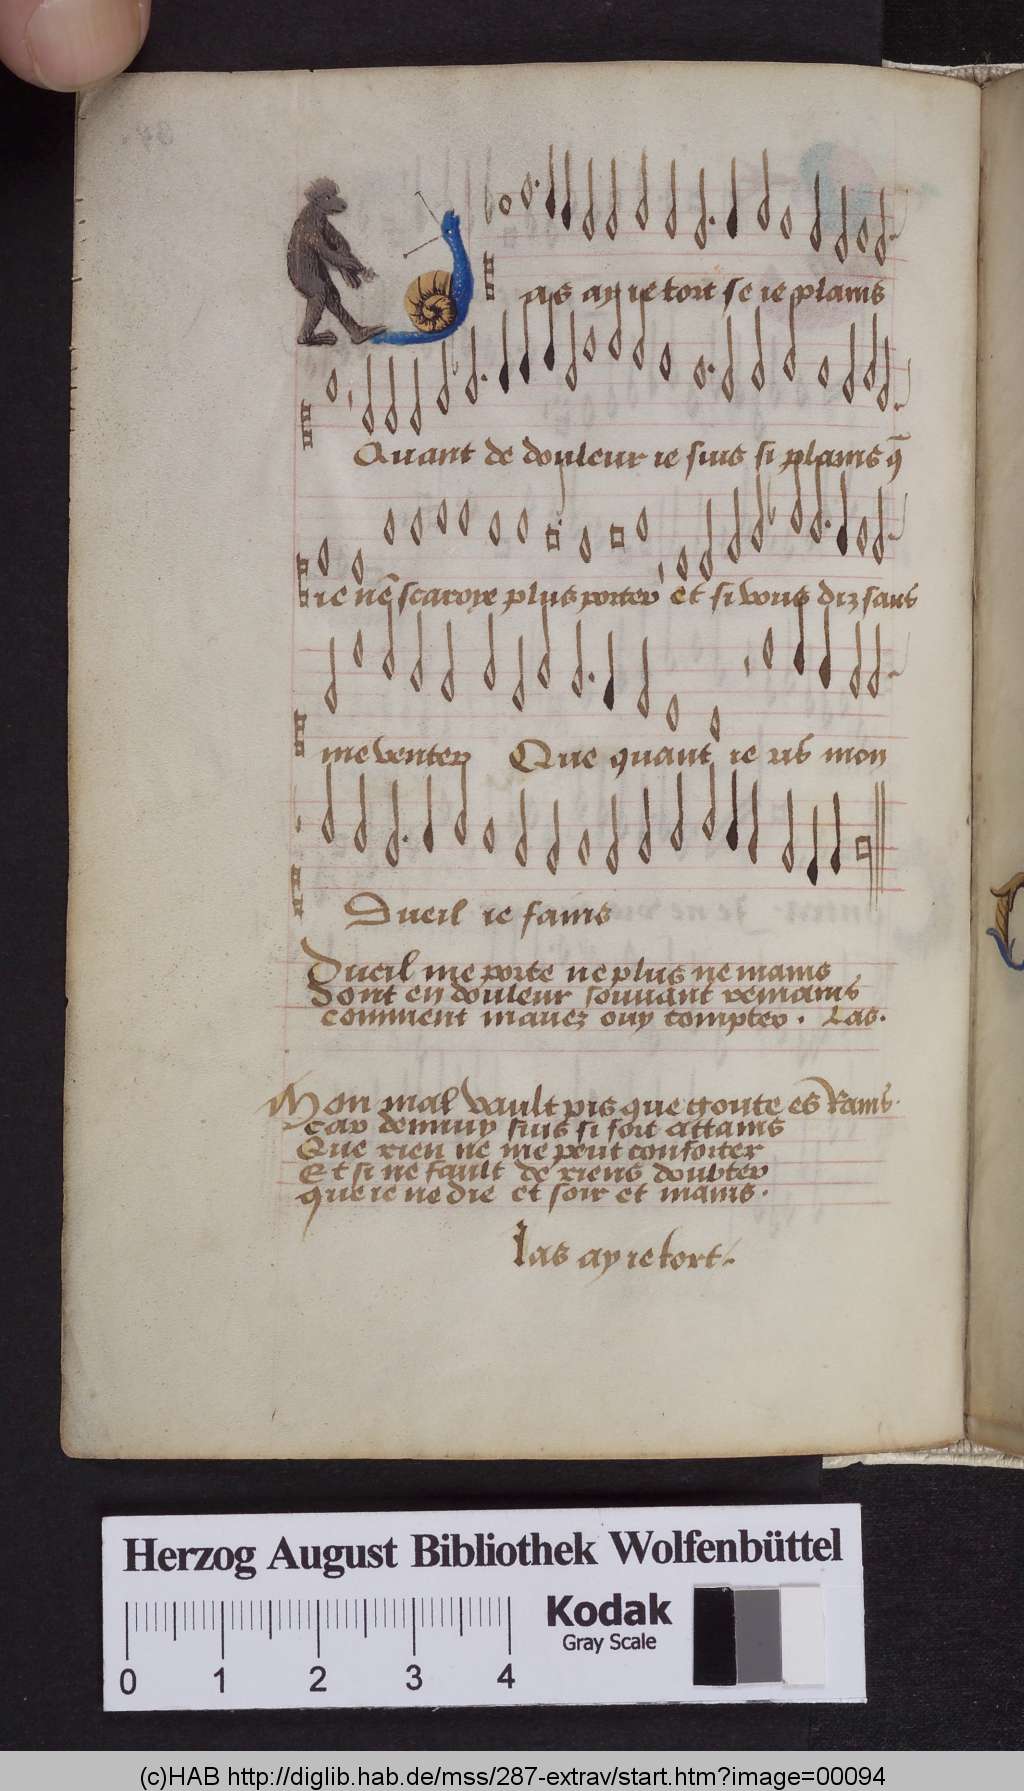 as ay ie tort se ie plains
Quant de douleur ie suis si plains q̄
ie nē scaroye plus porter et si vous diz sans
me venter Que quant ie ris mon
Dueil ie fains
Dueil me porte ne plus ne mains
Dont en douleur souuant remains
comment mauez ouy compter. Las.
Mon mal vault pis que goute es Rains.
Car dennuy suis si fort attains
Que rien ne me peut conforter
Et si ne fault de riens doubter
que ie ne die et soir et mains.
las ay ie tort
Herzog August Bibliothek Wolfenbüttel
Kodak
Gray Scale
0 1 2 3 4
(c)HAB http://diglib.hab.de/mss/287-extrav/start.htm?image=00094